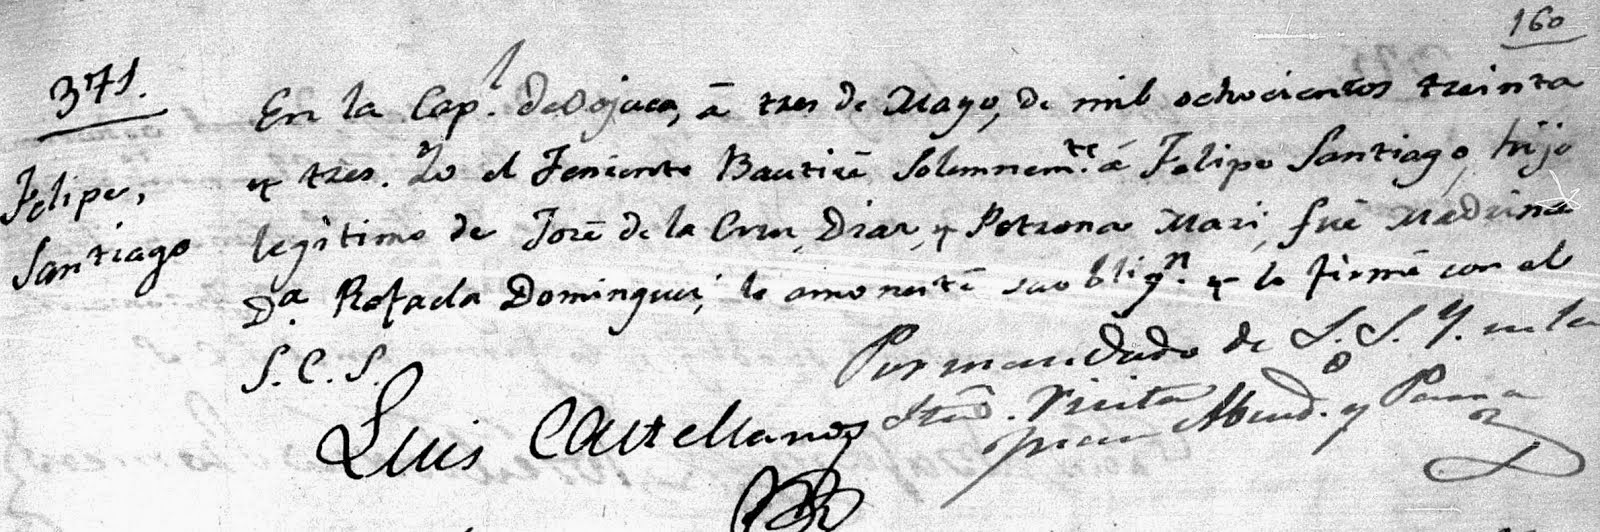 160
371.
Felipe,
Santiago
En la Cap.l de Dojuca, â tres de Mayo, de mil ochocientos treinta
y tres. Yo el Teniente Bauticê Solemnem.te â Felipe Santiago, hijo
legitimo de José de la Cruz Diaz, y Petrona Mari, fuê Madrina
D.a Rafaela Dominguez, le amonestê su oblig.n y lo firmê con el
S. C. S.
Luis Castellanos
Por mandado de S. S. Y. en la
Sta. Visita
Juan y